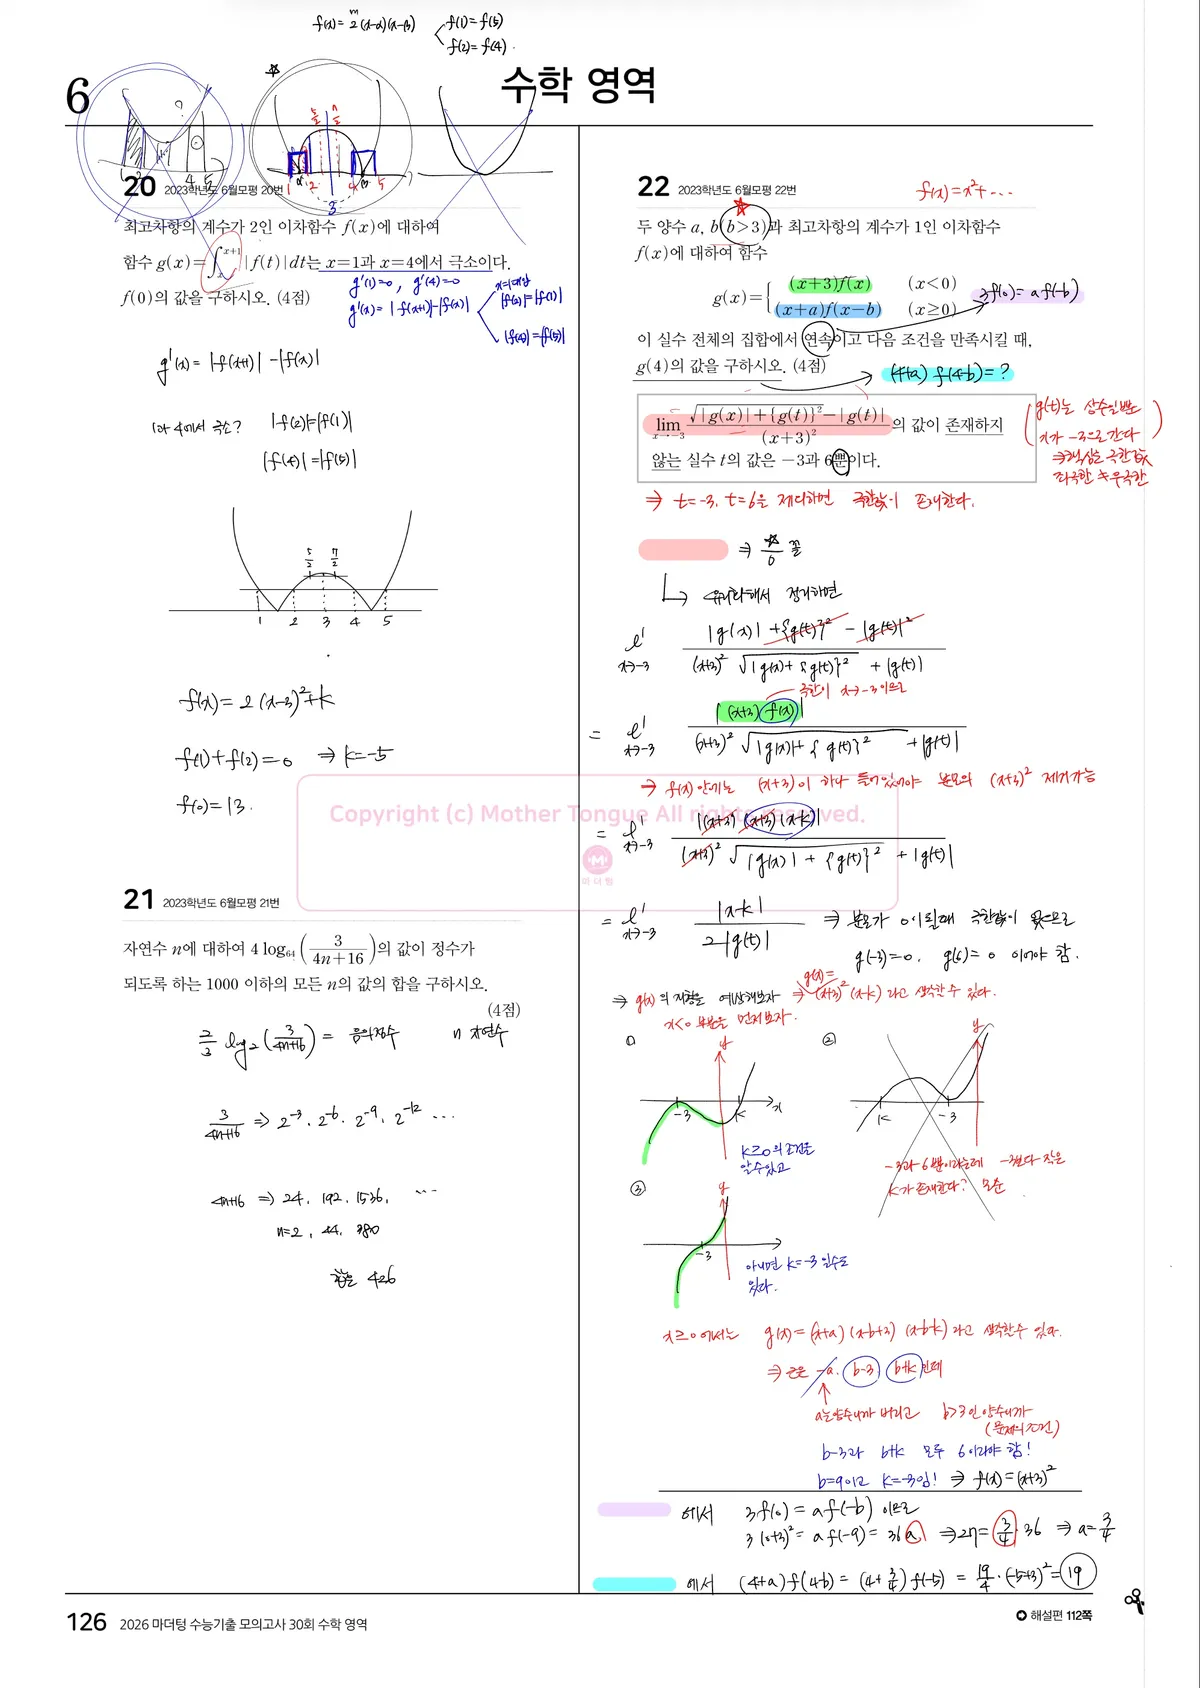 f(x)=2(x-α)(x-β)
f(1)=f(5)
f(2)=f(4).
6
수학 영역
20 2023학년도 6월모평 20번
최고차항의 계수가 2인 이차함수 f(x)에 대하여
함수 g(x)=∫ₓˣ⁺¹|f(t)|dt는 x=1과 x=4에서 극소이다.
f(0)의 값을 구하시오. (4점)
g'(1)=0, g'(4)=0
g'(x)=|f(x+1)|-|f(x)|
x=1대입
|f(2)|=|f(1)|
|f(4)|=|f(5)|
g'(x)=|f(x+1)|-|f(x)|
1과 4에서 극소?
|f(2)|=|f(1)|
|f(4)|=|f(5)|
5/2 7/2
1 2 3 4 5
f(x)=2(x-3)²+k
f(1)+f(2)=0 ⇒ k=-5
f(0)=13.
21 2023학년도 6월모평 21번
자연수 n에 대하여 4 log₆₄(3/(4n+16))의 값이 정수가
되도록 하는 1000 이하의 모든 n의 값의 합을 구하시오.
(4점)
2/3 log₂(3/(4n+16)) = 음의정수 n 자연수
3/(4n+16) ⇒ 2⁻³, 2⁻⁶, 2⁻⁹, 2⁻¹² ...
4n+16 ⇒ 24, 192, 1536, ...
n=2, 44, 380
합은 426
22 2023학년도 6월모평 22번
f(x)=x²+...
두 양수 a, b(b>3)과 최고차항의 계수가 1인 이차함수
f(x)에 대하여 함수
g(x)={ (x+3)f(x) (x<0)
(x+a)f(x-b) (x≥0)
3f(0)=af(-b)
이 실수 전체의 집합에서 연속이고 다음 조건을 만족시킬 때,
g(4)의 값을 구하시오. (4점)
(4+a)f(4-b)=?
lim x→-3 (√(|g(x)|+{g(t)}²)-|g(t)|)/(x+3)²의 값이 존재하지
않는 실수 t의 값은 -3과 6뿐이다.
g(t)는 상수일뿐
x가 -3으로 간다
⇒핵심은 극한값
좌극한 = 우극한
⇒ t=-3, t=6을 제외하면 극한값이 존재한다.
⇒ ☆/0 꼴
↳ 유리화해서 정리하면
lim x→-3 (|g(x)|+{g(t)}²-|g(t)|²)/((x+3)² √(|g(x)+{g(t)}²)+|g(t)|)
극한이 x→-3이므로
= lim x→-3 |(x+3)f(x)|/((x+3)² √(|g(x)+{g(t)}²)+|g(t)|)
⇒ f(x)안에는 (x+3)이 하나 들어있어야 분모의 (x+3)² 제거가능
= lim x→-3 |(x+3)(x+3)(x-k)|/((x+3)² √(|g(x)|+{g(t)}²)+|g(t)|)
= lim x→-3 |x-k|/2|g(t)| ⇒ 분모가 0이 될때 극한값이 없으므로
g(-3)=0, g(6)=0 이어야 함.
⇒ g(x)의 개형을 예상해보자 ⇒ g(x)=(x+3)²(x-k)라고 생각할 수 있다.
x<0 부분을 먼저보자.
① y x -3 k
k≥0의 조건을
알수있고
② y k -3
-3과 6뿐이라는데 -3보다 작은
k가 존재한다? 모순
③ y -3
아니면 k=-3일수도
있다.
x≥0에서는 g(x)=(x+a)(x-b+3)(x-b-k)라고 생각할수 있다.
⇒ 근은 -a, b-3, b+k인데
a는 양수니까 버리고 b>3인 양수니까
(문제의 조건)
b-3과 b+k 모두 6이라야 함!
b=9이고 k=-3임! ⇒ f(x)=(x+3)²
에서 3f(0)=af(-b) 이므로
3(0+3)²=af(-9)=36a ⇒27=3/4·36 ⇒ a=3/4
에서 (4+a)f(4-b)=(4+3/4)f(-5)=19/4·(-5+3)²=19
Copyright (c) Mother Tongue All rights reserved.
마더텅
126 2026 마더텅 수능기출 모의고사 30회 수학 영역
해설편 112쪽